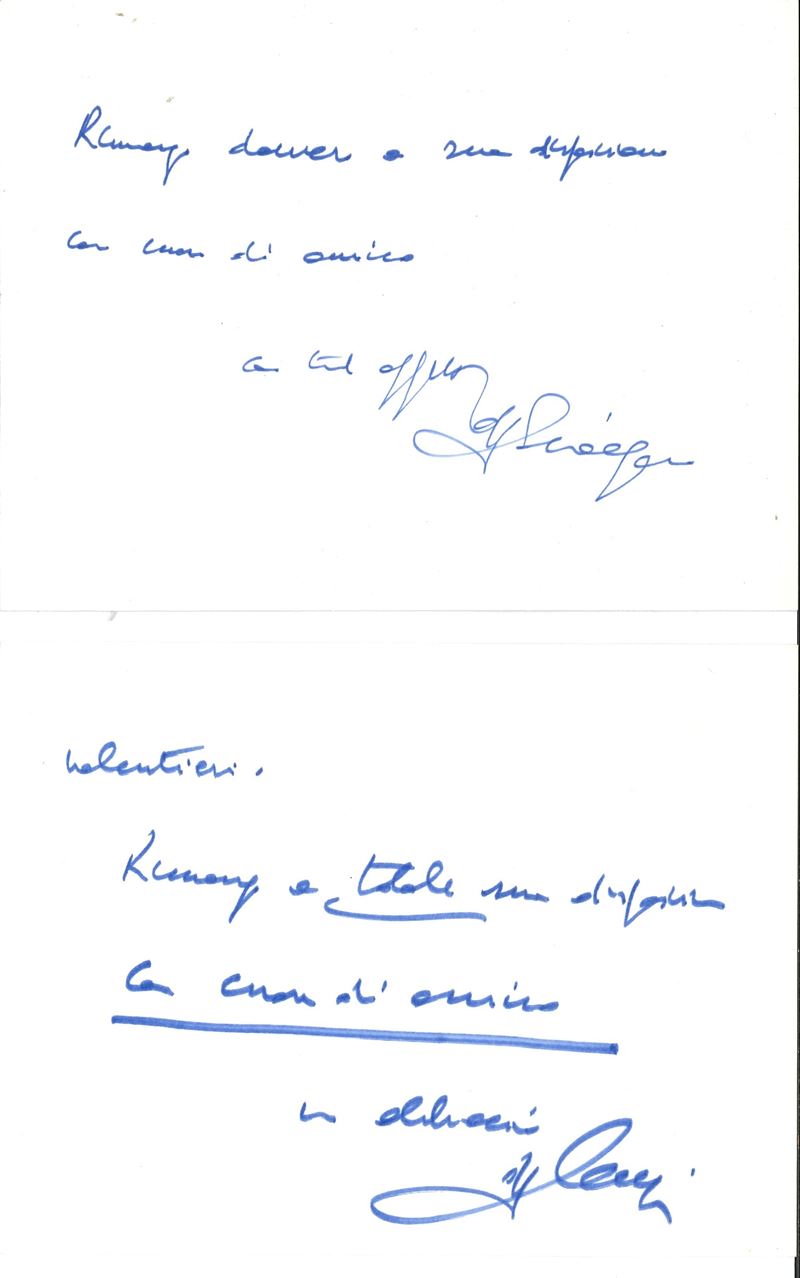 Rimango davvero a sua disposizione
con cuore di amico
con tutto affetto
volentieri.
Rimango a totale sua disposizione
con cuore di amico
un abbraccio